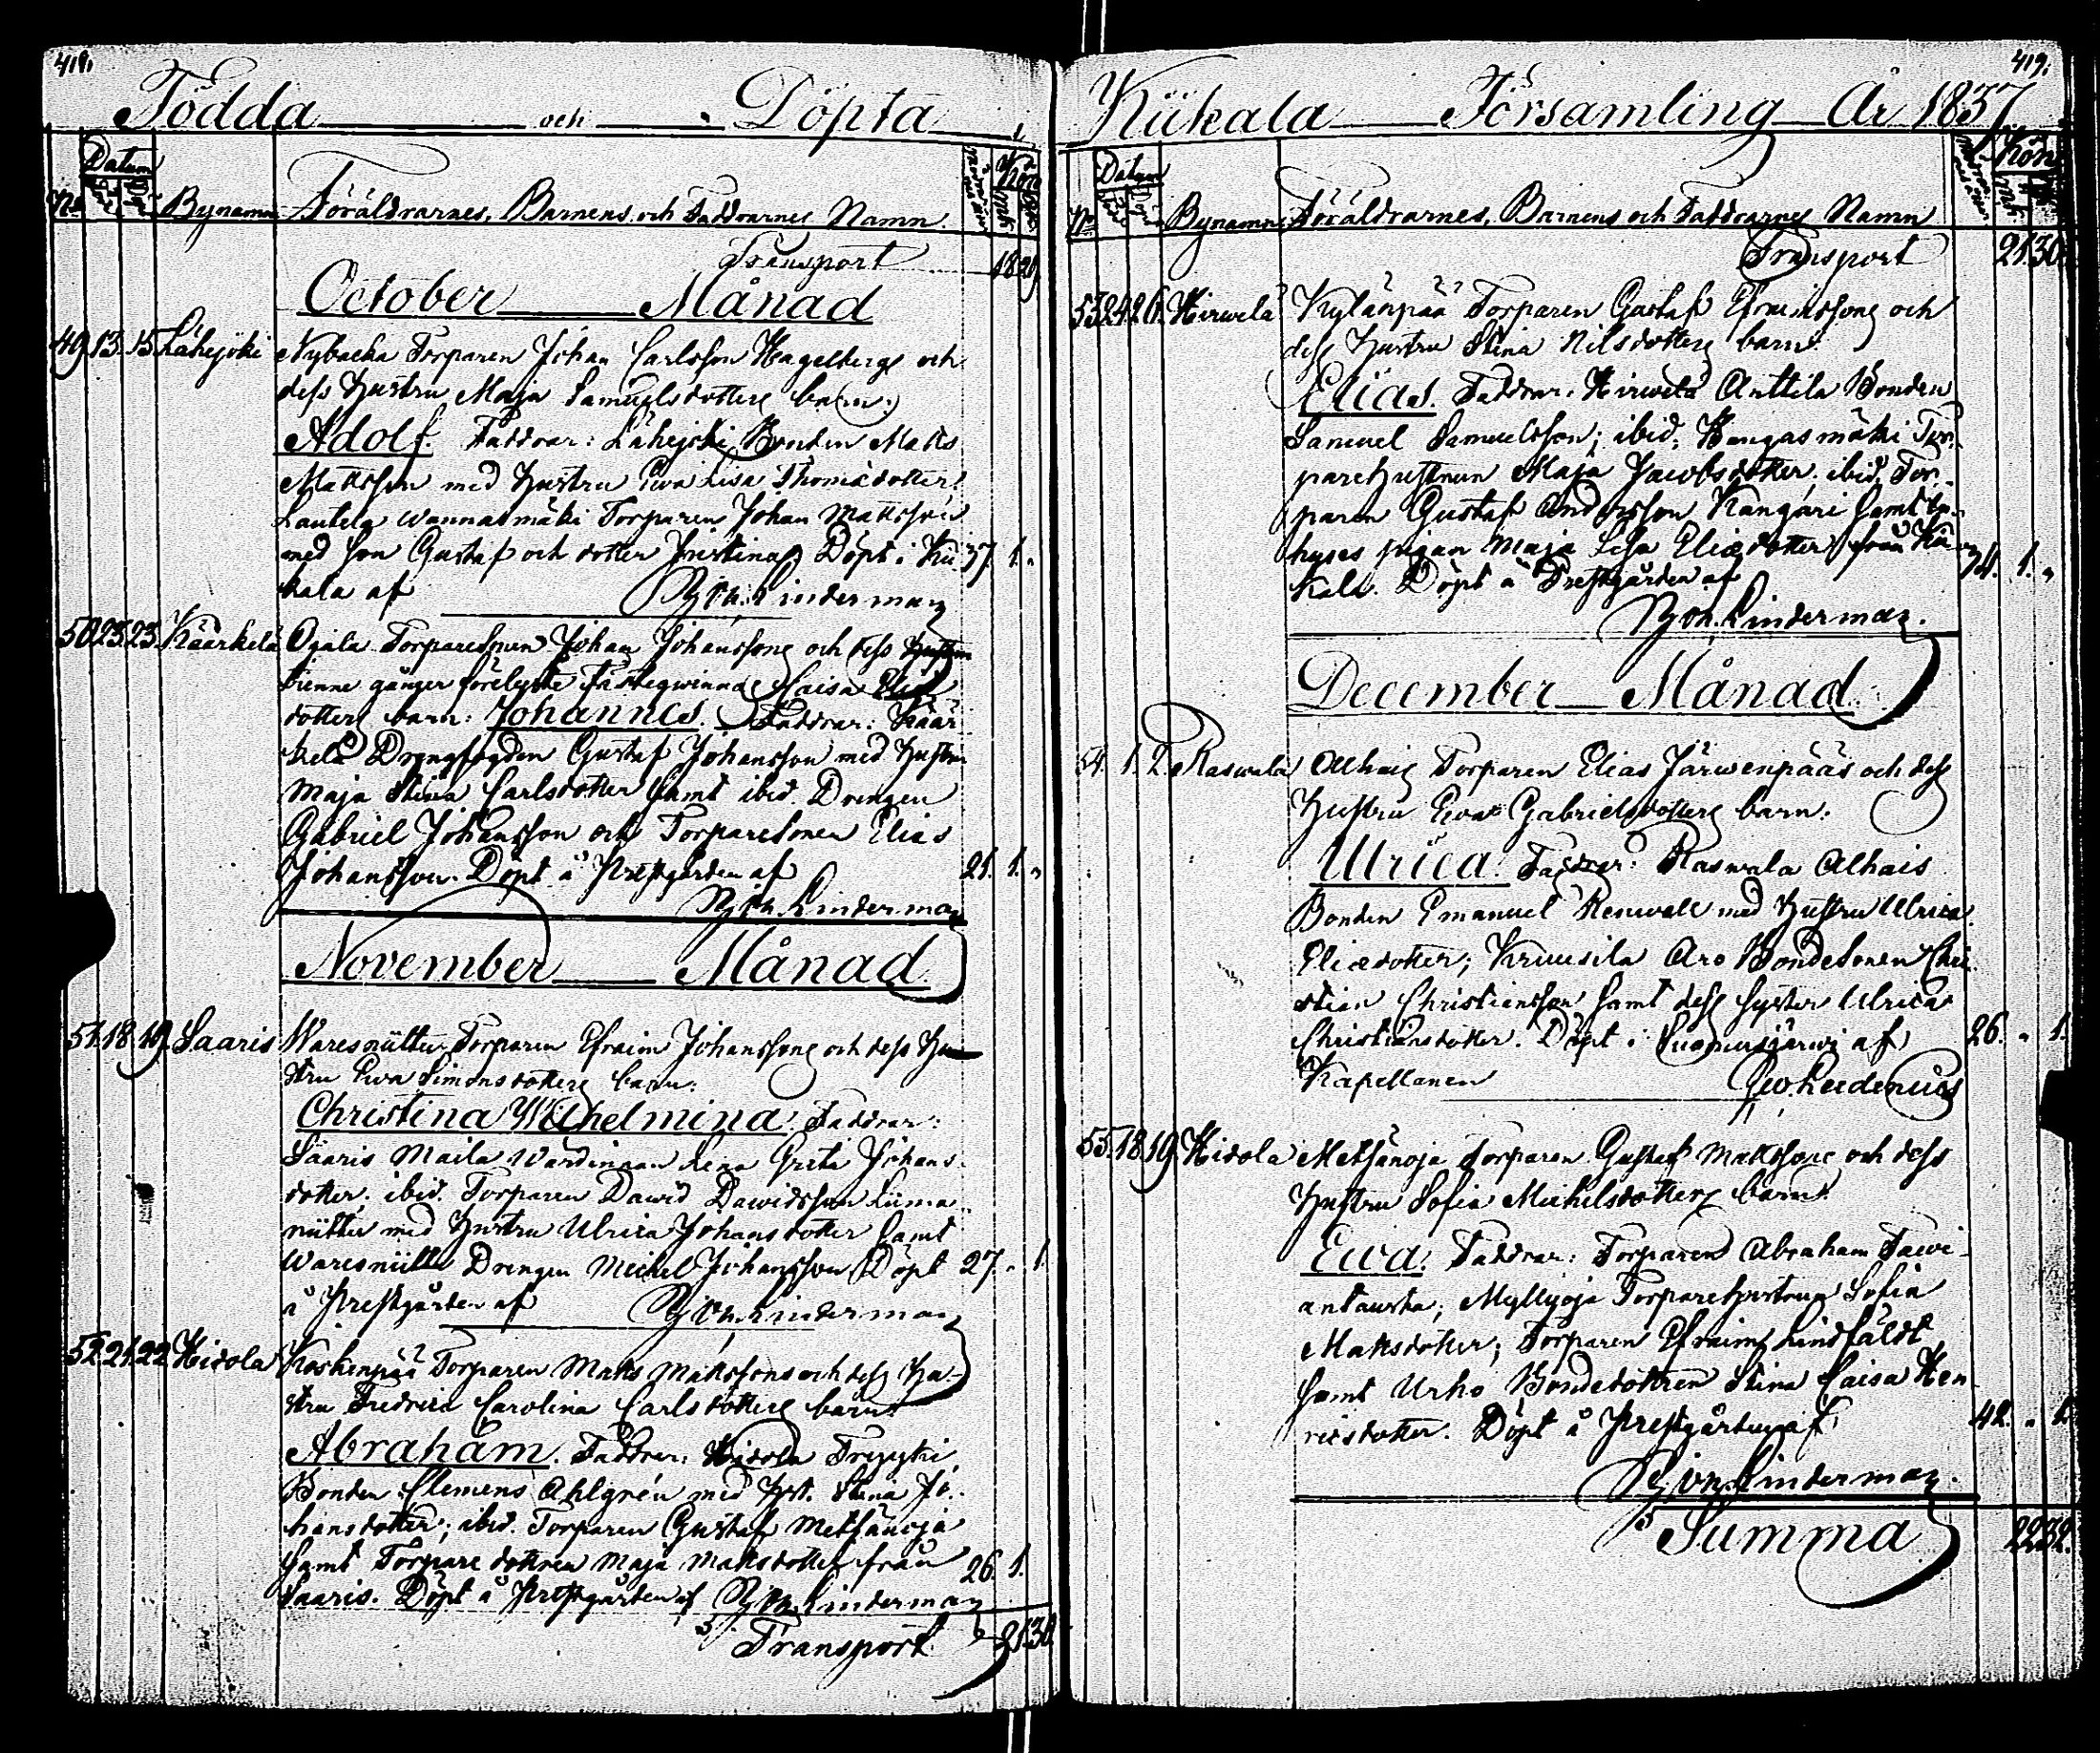 419.
Födda och Döpta
Datum
No Bynamn Föräldrarnes, Barnens och Faddrarnes Namn. Kön
Transport 18 29
October Månad
49. 13. 15. Lahejoki Nybacka Torparen Johan Carlsson Hagelbergs och
dess hustru Maja Samuelsdotters barn:
Adolf. Faddrar: Lahejoki Bonden Matts
Mattsson med hustru Ewa Lisa Thomædotter.
Lautela Wannasmäki Torparen Johan Mattsson
med son Gustaf och dotter Christina Döpt i Kii- 37. 1. "
kala af Joh. Linderman
50. 23. 25. Käärkelä Ojala Torparesonen Johan Johanssons och dess
trenne gånger förelyste Fästeqwinna Caisa Eliæ
dotters barn: Johannes. Faddrar: Käär-
kelä Drengfogden Gustaf Johansson med hustru
Maja Stina Carlsdotter samt ibid. Drengen
Gabriel Johansson och Torparesonen Elias
Johansson. Döpt å Prestgården af 21. 1. "
Joh. Linderman
November Månad
51. 18. 19. Saaris Waresniittu Torparen Efraim Johanssons och dess hu-
stru Ewa Simonsdotters barn:
Christina Wilhelmina. Faddrar:
Saaris Maila Wärdinnan Lena Greta Johans-
dotter. ibid. Torparen Dawid Dawidsson Liima-
niittu med hustru Ulrica Johansdotter samt
Waresniittu Drengen Michel Johansson Döpt 27. " 1.
å Prestgården af Joh. Linderman
52. 21. 22. Hidola Koskenpää Torparen Matts Mattssons och dess hu-
stru Fredrica Carolina Carlsdotters barn:
Abraham. Faddrar: Hidola
Bonden Clemens Ahlgrén med hust. Stina Jo-
hansdotter; ibid. Torparen Gustaf Metsänoja
samt Torpare dottren Maja Mattsdotter från 26. 1.
Saaris. Döpt å Prestgården af Joh. Linderman
Transport 21 30
419.
Kiikala Församling År 1837.
Datum
No Bynamn Föräldrarnes, Barnens och Faddrarnes Namn Kön
Transport 21 30
53. 24. 26. Hirwelä Kylänpää Torparen Gustaf Efraimssons och
dess hustru Stina Nilsdotters barn:
Elias. Faddrar: Hirwelä Anttila Bonden
Samuel Samuelsson; ibid. Kangasmäki Tor-
parehustrun Maja Jacobsdotter; ibid. Tor-
paren Gustaf Andersson Kangari samt In-
hyses pigan Maja Lisa Eliædotter från Kii-
kala. Döpt å Prestgården af 34. 1. "
Joh. Linderman.
December Månad.
54. 1. 2. Raswala Alhais Torparen Elias Järwenpääs och dess
hustru Ewa Gabrielsdotters barn:
Ulrica. Faddrar: Raswala Alhais
Bonden Emanuel Renwall med hustru Ulrica
Eliædotter; Kruusila Aro Bondesonen Chri-
stian Christiansson samt dess syster Ulrica
Christiansdotter. Döpt i Suomusjärwi af 26. " 1.
Kapellanen
55. 18. 19. Hidola Metsänoja Torparen Gustaf Mattssons och dess
hustru Sofia Michelsdotters barn:
Ewa. Faddrar: Torparen Abraham Tawi-
antausta; Myllyoja Torparehustrun Sofia
Mattsdotter; Torparen Efraim Lindfäldt
samt Urho Bondedottren Stina Caisa Hen-
ricsdotter. Döpt å Prestgården af 42. " 1.
Joh. Linderman.
Summa 22 32.